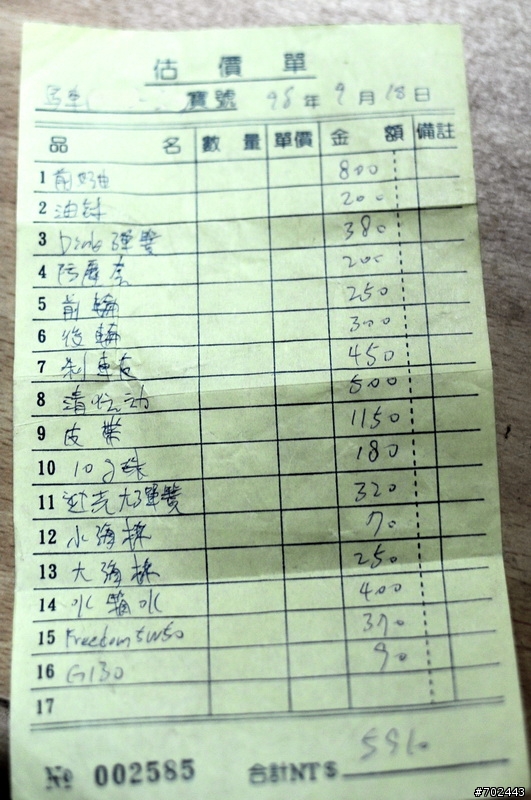 估價單
寶號 98年9月18日
品名 數量 單價 金額 備註
1 前奶油 800
2 油封 200
3 Dino彈簧 380
4 200
5 前輪 250
6 後輪 300
7 剎車皮 450
8 清傳動 500
9 皮帶 1150
10 10g珠 180
11 大彈簧 320
12 小海棉 70
13 大海棉 250
14 水箱水 400
15 Freedom 5W50 370
16 G130 90
17
№ 002585 合計NT$ 5910
#702443